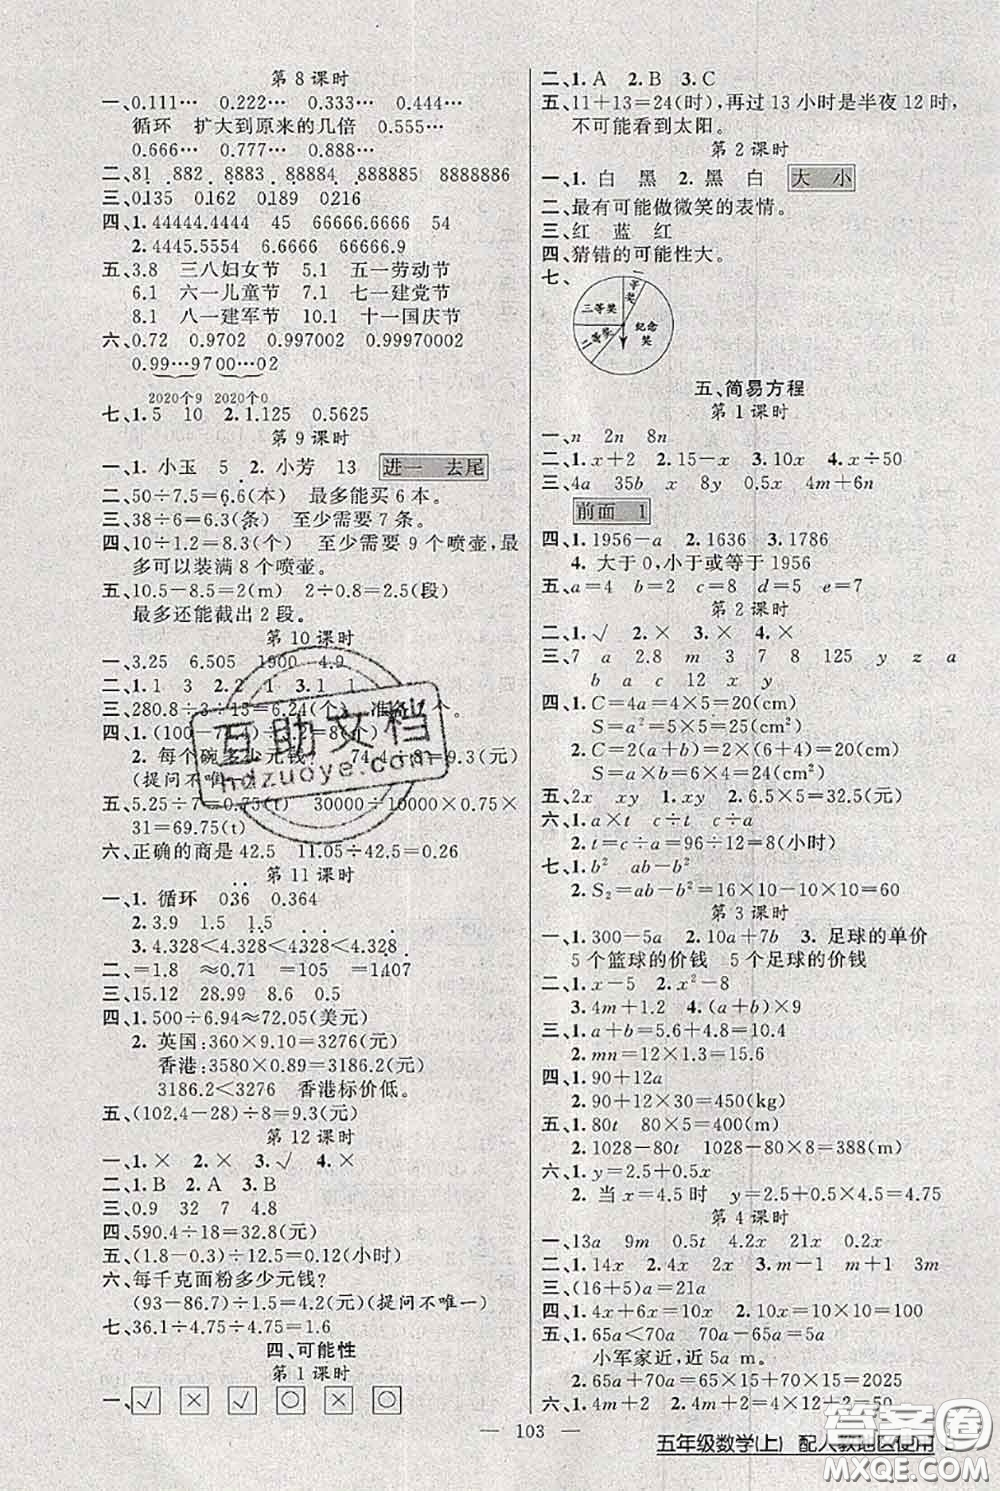 第8课时
一、0.111… 0.222… 0.333… 0.444…
循环 扩大到原来的几倍 0.555…
0.666… 0.777… 0.888…
二、81 882 8883 88884 888885 8888886
三、0.135 0.162 0.189 0.216
四、1. 44444.4444 45 66666.6666 54
2. 4445.5554 6.6666 0.6666
五、3.8 三八妇女节 5.1 五一劳动节
6.1 六一儿童节 7.1 七一建党节
8.1 八一建军节 10.1 十一国庆节
六、0.72 0.9702 0.997002 0.99970002
0.99…9700…02
2020个9 2020个0
七、1. 5 10 2. 1.125 0.5625
第9课时
一、1. 小玉 5 2. 小芳 13 进一 去尾
二、50÷7.5=6.6(本) 最多能买6本。
三、38÷6=6.3(条) 至少需要7条。
四、10÷1.2=8.3(个) 至少需要9个喷壶,最
多可以装满8个喷壶。
五、10.5-8.5=2(m) 2÷0.8=2.5(段)
最多还能截出2段。
第10课时
一、3.25 6.505 1900 4.9
二、1. 1 3 2. 2 1 3. 1 1
三、280.8÷3÷13=6.24(个) 准备7个。
四、1. (100-
2. 每个碗多少元钱? 74.4÷8=9.3(元)
(提问不唯一)
五、5.25÷7=0.75(t) 30000÷10000×0.75×
31=69.75(t)
六、正确的商是42.5 11.05÷42.5=0.26
第11课时
一、1. 循环 036 0.364
2. 3.9 1.5 1.5
3. 4.328<4.328<4.328<4.328
二、=1.8 ≈0.71 =105 =1407
三、15.12 28.99 8.6 0.5
四、1. 500÷6.94≈72.05(美元)
2. 英国:360×9.10=3276(元)
香港:3580×0.89=3186.2(元)
3186.2<3276 香港标价低。
五、(102.4-28)÷8=9.3(元)
第12课时
一、1. × 2. × 3. √ 4. ×
二、1. B 2. A 3. B
三、0.9 32 7 4.8
四、590.4÷18=32.8(元)
五、(1.8-0.3)÷12.5=0.12(小时)
六、每千克面粉多少元钱?
(93-86.7)÷1.5=4.2(元)(提问不唯一)
七、36.1÷4.75÷4.75=1.6
四、可能性
第1课时
一、√ × √ ○ × ○
二、1. A 2. B 3. C
五、11+13=24(时),再过13小时是半夜12时,
不可能看到太阳。
第2课时
一、1. 白 黑 2. 黑 白 大 小
二、最有可能做微笑的表情。
三、红 蓝 红
四、猜错的可能性大。
七、
一等奖
三等奖
二等奖
纪念奖
五、简易方程
第1课时
一、n 2n 8n
二、1. x+2 2. 15-x 3. 10x 4. x÷50
三、4a 35b x 8y 0.5x 4m+2n
前面 1
四、1. 1956-a 2. 1636 3. 1786
4. 大于0,小于或等于1956
五、a=4 b=2 c=8 d=5 e=7
第2课时
二、1. √ 2. × 3. × 4. ×
三、7 a 2.8 m 3 7 8 125 y z a
b a c 12 x y
四、1. C=4a=4×5=20(cm)
S=a²=5×5=25(cm²)
2. C=2(a+b)=2×(6+4)=20(cm)
S=ab=6×4=24(cm²)
五、2x xy 1. xy 2. 6.5×5=32.5(元)
六、1. a×t c÷t c÷a
2. t=c÷a=96÷12=8(小时)
七、1. b² ab-b²
2. S₂=ab-b²=16×10-10×10=60
第3课时
一、1. 300-5a 2. 10a+7b 3. 足球的单价
5个篮球的价钱 5个足球的价钱
二、1. x-5 2. x²-8
3. 4m+1.2 4. (a+b)×9
三、1. a+b=5.6+4.8=10.4
2. mn=12×1.5=18
四、1. 90+12a
2. 90+12×30=450(kg)
五、1. 80t 80×5=400(m)
2. 1028-80t 1028-80×8=388(m)
六、1. y=2.5+0.5x
2. 当x=4.5时 y=2.5+0.5×4.5=4.75
第4课时
一、13a 9m 0.5t 4.2x 7b 6x
二、1. 14x 2. 4x 2x 3. m-1 m+1
三、(16+5)a=21a
四、1. 4x+6x 2. 10x=10×10=100
五、1. 65a<70a 70a-65a=5a
小军家近,近5a m。
2. 65a+70a=65×15+70×15=2025
六、2m+2m+2=4m+2=4×12+2=50
103
五年级数学(上) 配人教地区使用
互助文档
hdzuoye.com
答案圈
MXQE.COM